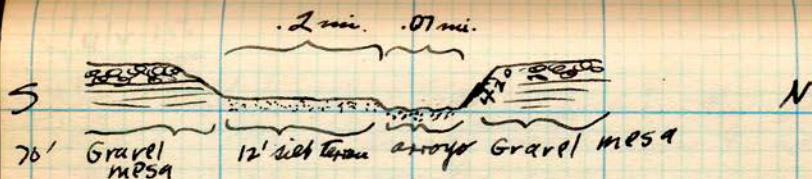 .2 mi. .07 mi.
S 42° N
70' Gravel mesa 12' silt terrace arroyo Gravel mesa